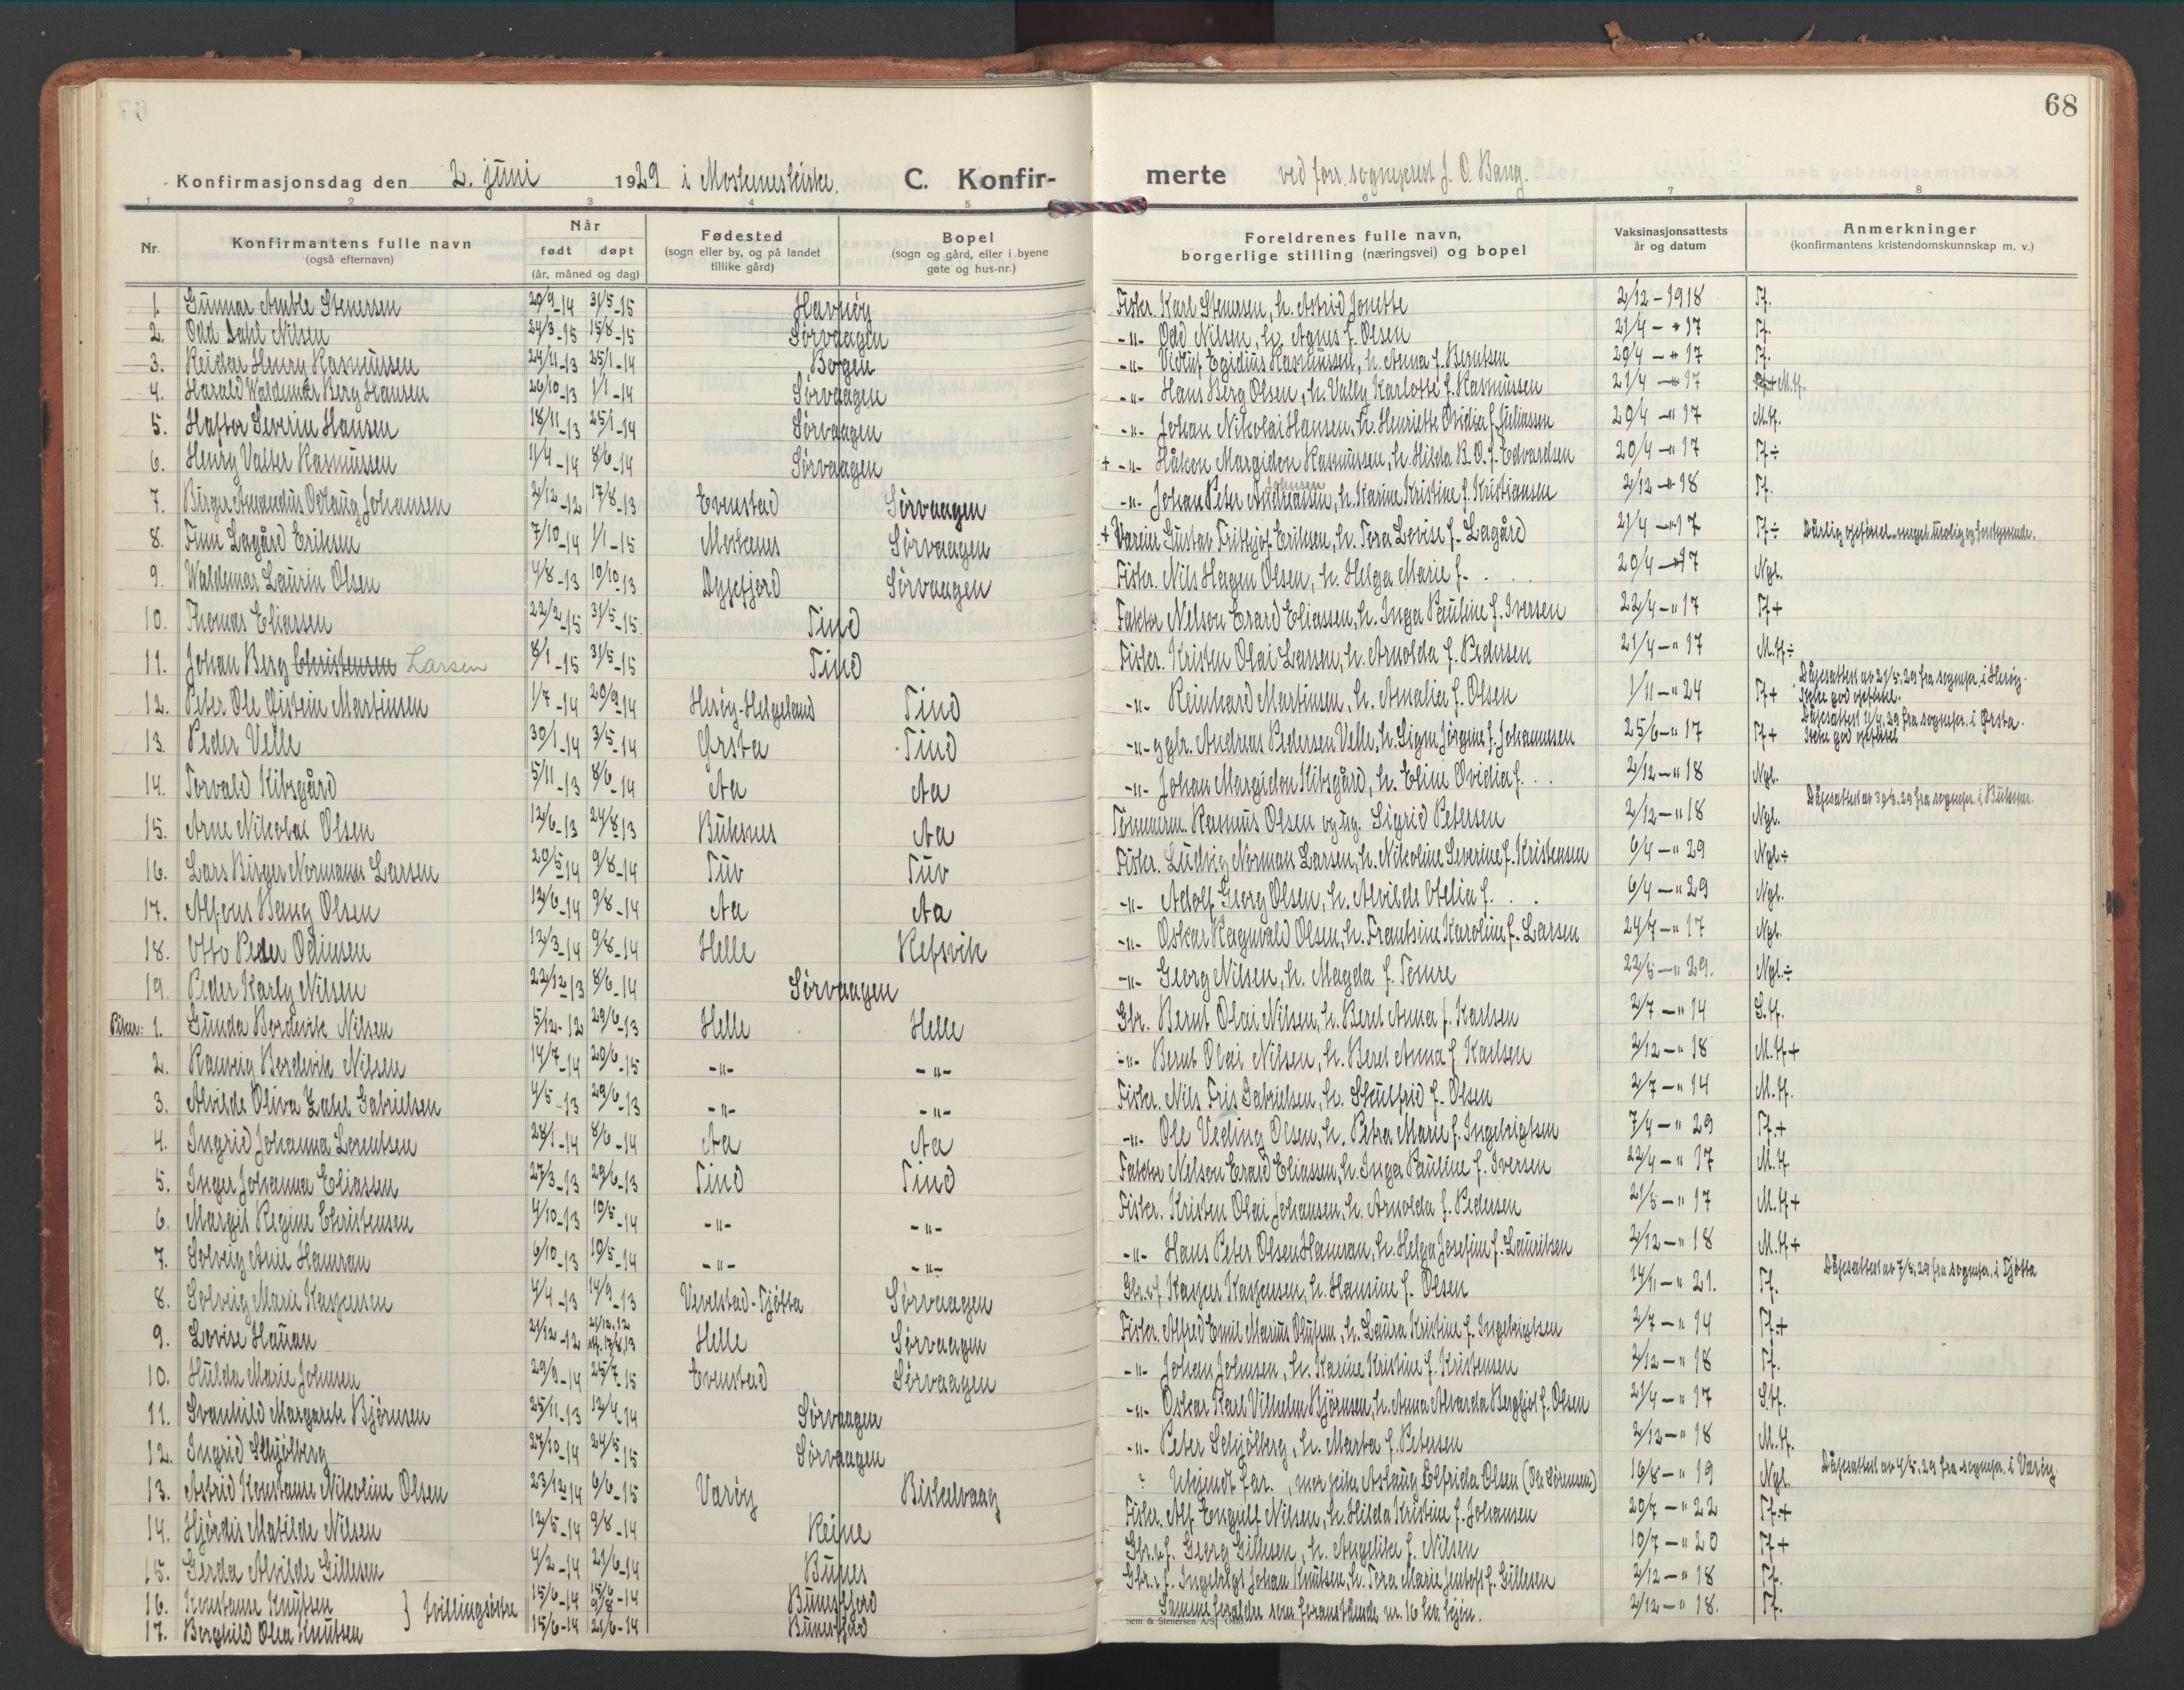 68
Konfirmasjonsdag den 2. juni 1929 i Moskeneskirke. C. Konfir-merte ved forr. sogneprest J. O. Bang.
1 2 3 4 5 6 7 8
Nr. Konfirmantens fulle navn (også efternavn) Når født døpt (år, måned og dag) Fødested (sogn eller by, og på landet tillike gård) Bopel (sogn og gård, eller i byene gate og hus-nr.) Foreldrenes fulle navn, borgerlige stilling (næringsvei) og bopel Vaksinasjonsattests år og datum Anmerkninger (konfirmantens kristendomskunnskap m. v.)
1. Gunnar Amble Stenersen 29/9-14 31/5-15 Havnøy Fisker. Karl Stenersen, h. Astrid Jonette 2/12-1918 Tf.
2. Odd Dahl Nilsen 24/3-15 15/8-15 Sørvaagen -"- Odd Nilsen, h. Agnes f. Olsen 21/4-"17 Tf.
3. Reidar Henry Rasmussen 24/11-13 25/1-14 Borgen -"- Vidluf Egidius Rasmussen, h. Anna f. Berntsen 20/4-"17 Tf.
4. Harald Waldemar Berg Hansen 26/10-13 1/1-14 Sørvaagen -"- Hans Berg Olsen, h. Vally Karlotte f. Rasmussen 21/4-"17 M.tf.
5. Haftor Severin Hansen 18/11-13 25/1-14 Sørvaagen -"- Johan Nikolai Hansen, h. Henriette Ovidia f. Juliassen 20/4-"17 M.tf.
6. Henry Valter Rasmussen 11/4-14 8/6-14 Sørvaagen + -"- Håkon Margidon Rasmussen, h. Hilda K. O. f. Edvardsen 20/4-"17 Tf÷
7. Birger Amandus Odlaug Johansen 2/12-12 17/8-13 Evenstad Sørvaagen -"- Johan Peter Andreassen Johnsen, h. Karine Kristine f. Kristiansen 2/12-"18 Tf.
8. Finn Lagård Eriksen 7/10-14 1/1-15 Moskenes Sørvaagen + Gustav Fritkjof Eriksen, h. Tora Lovise f. Lagård 21/4-"17 Tf÷ Dårlig opførsel - meget urolig og forstyrrende.
9. Waldemar Laurin Olsen 4/8-13 10/10-13 Dypfjord Sørvaagen Fisker. Nils Hagen Olsen, h. Helga Marie f. . . . 20/4-"17 Ngl.
10. Thomas Eliassen 22/2-15 31/5-15 Tind Faktor Nelson Erard Eliassen, h. Inga Pauline f. Iversen 22/4-"17 Tf+
11. Johan Berg Christensen Larsen 8/1-15 31/5-15 Tind Fisker. Kristen Olai Larsen, h. Arnolda f. Pedersen 21/4-"17 M.tf÷
12. Peter Ole Øistein Martinsen 1/7-14 20/9-14 Herøy-Helgeland Tind -"- Reinhard Martinsen, h. Amalia f. Olsen 1/11-"24 Tf+ Dåpsattest av 21/5.29 fra sognepr. i Herøy. Ikke god opførsel.
13. Peder Velle 30/1-14 3/5-14 Ørsta Tind -"- gbr. Andreas Pedersen Velle, h. Signi Jörgine f. Johannesen 25/6-"17 Tf+ Dåpsattest 11/4.29 fra sognepr. i Ørsta. Ikke god opførsel
14. Torvald Kilsgård 5/11-13 8/6-14 Aa Aa -"- Johan Margidon Kilsgård, h. Eline Ovidia f. . . 2/12-"18 Ngl.
15. Arne Nikolai Olsen 12/6-13 24/8-13 Buksnes Aa Tömmerm. Rasmus Olsen og ug. Sigrid Petersen 2/12-"18 Ngl. Dåpsattest av 30/3.29 fra sognepr. i Buksnes.
16. Lars Birger Normann Larsen 20/5-14 9/8-14 Tuv Tuv Fisker. Ludvig Norman Larsen, h. Nikoline Severine f. Kristensen 6/4-"29 Ngl÷
17. Alfons Bang Olsen 12/6-14 9/8-14 Aa Aa -"- Adolf Georg Olsen, h. Alvilde Otelia f. . . 6/4-"29 Ngl.
18. Otto Peder Odinsen 12/3-14 9/8-14 Helle Refsvik -"- Oskar Ragnvald Olsen, h. Frantsine Karoline f. Larsen 24/4-"17 Ngl.
19. Peder Karly Nilsen 22/12-13 8/6-14 Sørvaagen -"- Georg Nilsen, h. Magda f. Tomre 22/5-"29. Ngl.÷
Piker: 1. Gunda Bordevik Nilsen 5/12-12 29/6-13 Helle Helle Gbr. Bernt Olai Nilsen, h. Beret Anna f. Karlsen 2/7-"14 S.tf.
2. Ranveig Bordevik Nilsen 14/7-14 20/6-15 -"- -"- -"- Bernt Olai Nilsen, h. Beret Anna f. Karlsen 2/12-"18 M.tf+
3. Alvilde Oliva Zakel Gabrielsen 4/5-13 29/6-13 -"- -"- Fisker. Nils Friis Gabrielsen, h. Skulfrid f. Olsen 2/7-"14 M.tf.
4. Ingrid Johanna Lorentsen 28/1-14 8/6-14 Aa Aa -"- Ole Veding Olsen, h. Petra Marie f. Ingebrigtsen 7/4-"29 Tf.+
5. Inger Johanna Eliassen 27/3-13 29/6-13 Tind Tind Faktor Nelson Erard Eliassen, h. Inga Pauline f. Iversen 22/4-"17 M.tf.
6. Margit Regine Christensen 4/10-13 10/5-14 -"- -"- Fisker. Kristen Olai Johansen, h. Arnolda f. Pedersen 21/5-"17 M.tf+
7. Solveig Anie Hamran 6/10-13 10/5-14 -"- -"- -"- Hans Peter Olsen Hamran, h. Helga Josefine f. Lauritsen 2/12-"18 M.tf+
8. Solveig Marie Kaspersen 4/4-13 14/9-13 Vevelstad-Tjøtta Sørvaagen Gbr.+f. Kasper Kaspersen, h. Hansine f. Olsen 14/11-"21. Tf. Dåpsattest av 7/5.29 fra sognepr. i Tjøtta
9. Lovise Hauan 21/12-12 21/12.12 17/8.13 Helle Sørvaagen Fisker. Alfred Emil Marius Olufsen, h. Laura Kristine f. Ingebrigtsen 2/7-"14 Tf.+
10. Hulda Marie Johnsen 29/9-14 25/7-15 Evenstad Sørvaagen -"- Johan Johnsen, h. Karine Kristine f. Kristensen 2/12-"18 Tf.
11. Svanhild Margarete Bjørnsen 25/11-13 12/4-14 Sørvaagen -"- Oskar Karl Vilhelm Bjørnsen, h. Anna Alvarda Bergljot f. Olsen 21/4-"17 S.tf.
12. Ingrid Schjølberg 27/10-14 24/5-15 Sørvaagen -"- Peter Schjølberg, h. Marta f. Petersen 2/12-"18 M.tf.
13. Astrid Konstanse Nikoline Olsen 23/12-14 6/6-15 Varøy Biskelvaag ? Ukjendt far., mor pike Aslaug Elfrida Olsen (Ola Sørensen) 16/8-"19 Ngl. Dåpsattest av 4/5.29 fra sognepr. i Varøy.
14. Hjørdis Matilde Nilsen 12/5-14 9/8-14 Reine Fisker. Alf Engulf Nilsen, h. Hilda Kristine f. Johansen 20/7-"22 Tf.+
15. Gerda Alvilde Gillesen 4/2-14 21/6-14 Bunes Gbr.+f. Georg Gillesen, h. Angelika f. Nilsen 10/7-"20 Tf+
16. Konstanse Knutsen } tvillingsøstre 15/6-14 15/6 9/8-14 Bunesfjord Gbr.+f. Ingebrigt Johan Knutsen, h. Tora Marie Jentoft f. Gillesen 2/12-"18 Tf.
17. Borghild Olea Knutsen 15/6-14 21/6-14 Bunesfjord Samme foreldre som foranstående nr. 16 2/12-"18. Tf.
Sem & Stenersen A/S, Oslo.